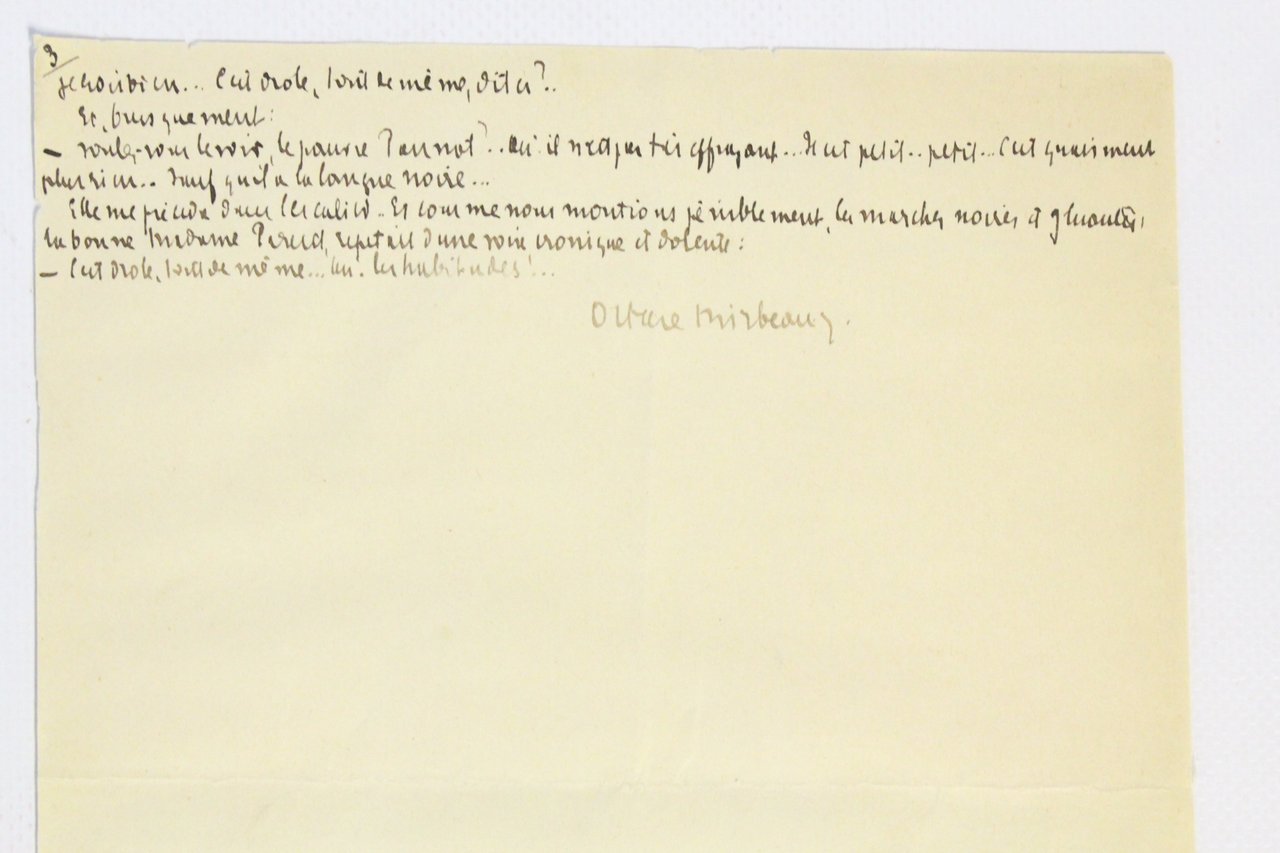 3
je crois bien... C'est drole, tout de même, dites ?..
Et, brusquement :
— Voulez-vous le voir, le pauvre Pannot ?.. Ah ! il n'est pas très effrayant... Il est petit.. petit... C'est quasiment
plus rien.. Sauf qu'il a la langue noire...
Elle me précéda dans l'escalier.. Et comme nous montions péniblement, les marches noires et gluantes,
la bonne Madame répétait d'une voix ironique et dolente :
— C'est drole, tout de même... les habitudes !...
Octave Mirbeau.